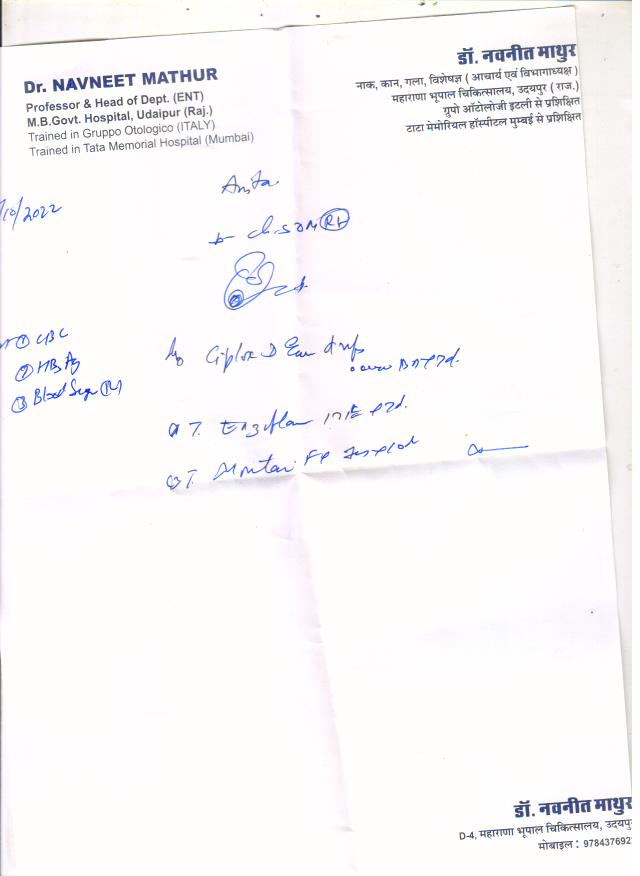 Dr. NAVNEET MATHUR
Professor & Head of Dept. (ENT)
M.B.Govt. Hospital, Udaipur (Raj.)
Trained in Gruppo Otologico (ITALY)
Trained in Tata Memorial Hospital (Mumbai)
डॉ. नवनीत माथुर
नाक, कान, गला, विशेषज्ञ ( आचार्य एवं विभागाध्यक्ष )
महाराणा भूपाल चिकित्सालय, उदयपुर ( राज.)
ग्रुपो ऑटोलोजी इटली से प्रशिक्षित
टाटा मेमोरियल हॉस्पीटल मुम्बई से प्रशिक्षित
/10/2022
CSOM Rt
① CBC
② HBsAg
③ Blood Sugar (R)
Ciplox D Ear drops
T. Enzflam
T. Montair FX
डॉ. नवनीत माथुर
D-4, महाराणा भूपाल चिकित्सालय, उदयपुर
मोबाइल : 978437692